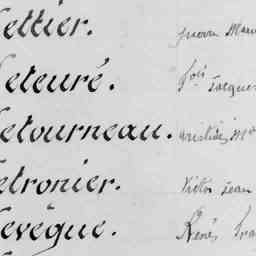 ettier. Pierre Mar
eteuré. Fois Jacques
etourneau. Aristide, Me
etronier. Victor Jean
evêque. René, Fra